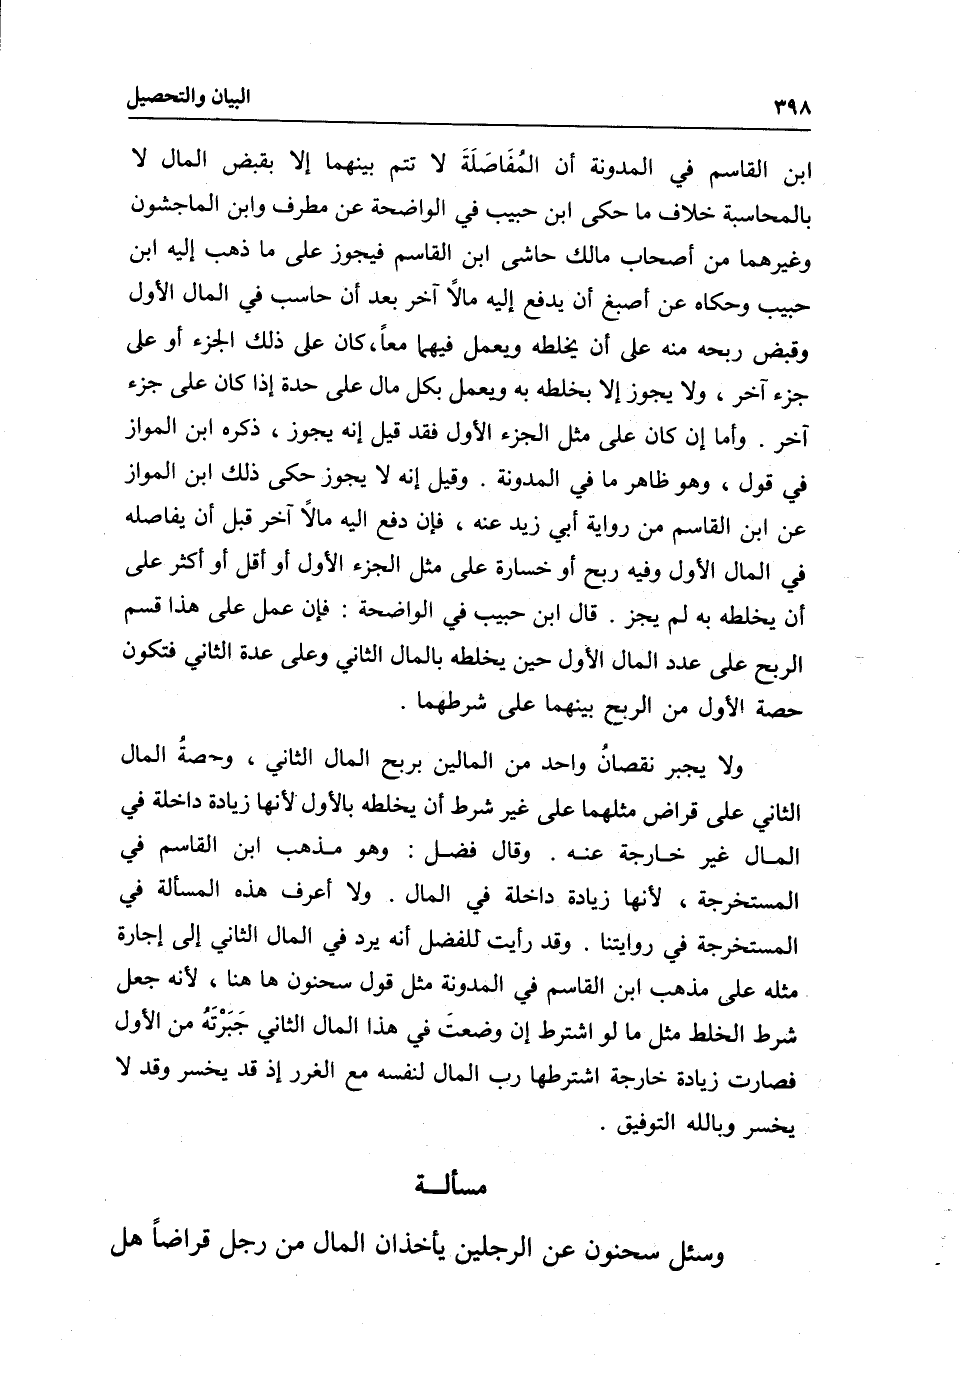 ٣٩٨ البيان والتحصيل
ابن القاسم في المدونة أن المُفَاصَلَةَ لا تتم بينهما إلا بقبض المال لا
بالمحاسبة خلاف ما حكى ابن حبيب في الواضحة عن مطرف وابن الماجشون
وغيرهما من أصحاب مالك حاشى ابن القاسم فيجوز على ما ذهب إليه ابن
حبيب وحكاه عن أصبغ أن يدفع إليه مالاً آخر بعد أن حاسب في المال الأول
وقبض ربحه منه على أن يخلطه ويعمل فيهما معاً، كان على ذلك الجزء أو على
جزء آخر ، ولا يجوز إلا بخلطه به ويعمل بكل مال على حدة إذا كان على جزء
آخر . وأما إن كان على مثل الجزء الأول فقد قيل إنه يجوز ، ذكره ابن المواز
في قول ، وهو ظاهر ما في المدونة . وقيل إنه لا يجوز حكى ذلك ابن المواز
عن ابن القاسم من رواية أبي زيد عنه ، فإن دفع اليه مالاً آخر قبل أن يفاصله
في المال الأول وفيه ربح أو خسارة على مثل الجزء الأول أو أقل أو أكثر على
أن يخلطه به لم يجز . قال ابن حبيب في الواضحة : فإن عمل على هذا قسم
الربح على عدد المال الأول حين يخلطه بالمال الثاني وعلى عدة الثاني فتكون
حصة الأول من الربح بينهما على شرطهما .
ولا يجبر نقصانُ واحد من المالين بربح المال الثاني ، وحصةُ المال
الثاني على قراض مثلهما على غير شرط أن يخلطه بالأول لأنها زيادة داخلة في
المال غير خارجة عنه . وقال فضل : وهو مذهب ابن القاسم في
المستخرجة ، لأنها زيادة داخلة في المال . ولا أعرف هذه المسألة في
المستخرجة في روايتنا . وقد رأيت للفضل أنه يرد في المال الثاني إلى إجارة
مثله على مذهب ابن القاسم في المدونة مثل قول سحنون ها هنا ، لأنه جعل
شرط الخلط مثل ما لو اشترط إن وضعتَ في هذا المال الثاني جَبَرْتَهُ من الأول
فصارت زيادة خارجة اشترطها رب المال لنفسه مع الغرر إذ قد يخسر وقد لا
يخسر وبالله التوفيق .
مسألة
وسئل سحنون عن الرجلين يأخذان المال من رجل قراضاً هل